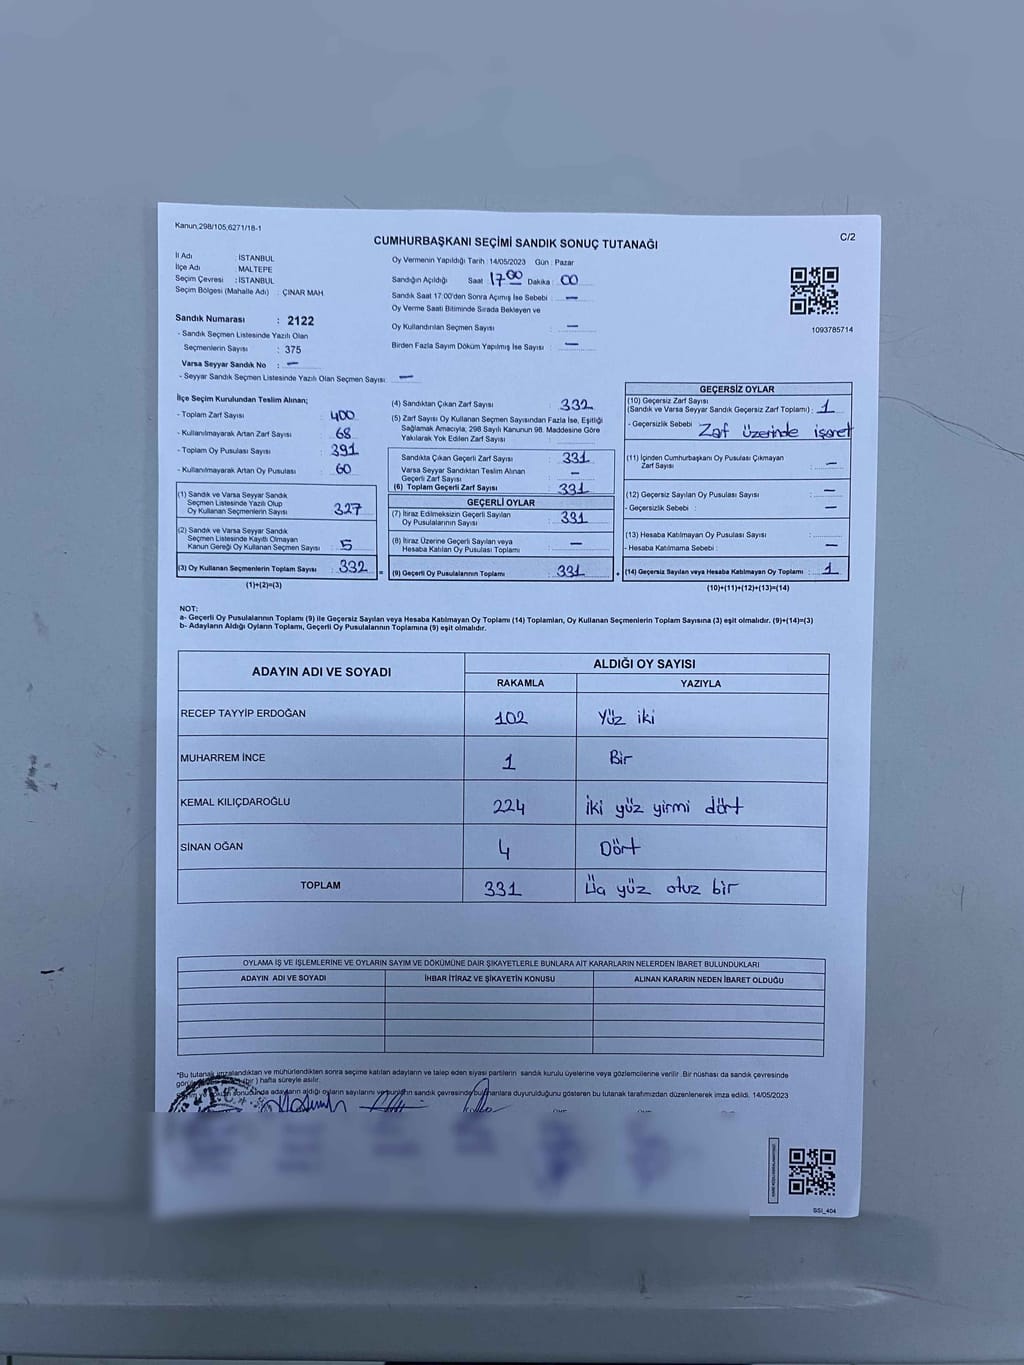 Kanun,298/105,6271/18-1
C/2
CUMHURBAŞKANI SEÇİMİ SANDIK SONUÇ TUTANAĞI
İl Adı : İSTANBUL
İlçe Adı : MALTEPE
Seçim Çevresi : İSTANBUL
Seçim Bölgesi (Mahalle Adı) : ÇINAR MAH.
Sandık Numarası : 2122
- Sandık Seçmen Listesinde Yazılı Olan
Seçmenlerin Sayısı : 375
Varsa Seyyar Sandık No : —
- Seyyar Sandık Seçmen Listesinde Yazılı Olan Seçmen Sayısı: —
Oy Vermenin Yapıldığı Tarih : 14/05/2023 Gün : Pazar
Sandığın Açıldığı Saat 17:00 Dakika : 00
Sandık Saat 17:00'den Sonra Açımış İse Sebebi : —
Oy Verme Saati Bitiminde Sırada Bekleyen ve
Oy Kullandırılan Seçmen Sayısı : —
Birden Fazla Sayım Döküm Yapılmış İse Sayısı : —
1093785714
İlçe Seçim Kurulundan Teslim Alınan;
- Toplam Zarf Sayısı : 400
- Kullanılmayarak Artan Zarf Sayısı : 68
- Toplam Oy Pusulası Sayısı : 391
- Kullanılmayarak Artan Oy Pusulası : 60
(1) Sandık ve Varsa Seyyar Sandık
Seçmen Listesinde Yazılı Olup
Oy Kullanan Seçmenlerin Sayısı : 327
(2) Sandık ve Varsa Seyyar Sandık
Seçmen Listesinde Kayıtlı Olmayan
Kanun Gereği Oy Kullanan Seçmen Sayısı : 5
(3) Oy Kullanan Seçmenlerin Toplam Sayısı : 332 =
(1)+(2)=(3)
(4) Sandıktan Çıkan Zarf Sayısı : 332
(5) Zarf Sayısı Oy Kullanan Seçmen Sayısından Fazla İse, Eşitliği
Sağlamak Amacıyla; 298 Sayılı Kanunun 98. Maddesine Göre
Yakılarak Yok Edilen Zarf Sayısı :
Sandıkta Çıkan Geçerli Zarf Sayısı : 331
Varsa Seyyar Sandıktan Teslim Alınan
Geçerli Zarf Sayısı : —
(6) Toplam Geçerli Zarf Sayısı : 331
GEÇERLİ OYLAR
(7) İtiraz Edilmeksizin Geçerli Sayılan
Oy Pusulalarının Sayısı : 331
(8) İtiraz Üzerine Geçerli Sayılan veya
Hesaba Katılan Oy Pusulası Toplamı : —
(9) Geçerli Oy Pusulalarının Toplamı : 331 +
GEÇERSİZ OYLAR
(10) Geçersiz Zarf Sayısı
(Sandık ve Varsa Seyyar Sandık Geçersiz Zarf Toplamı) : 1
- Geçersizlik Sebebi : Zaf üzerinde işaret
(11) İçinden Cumhurbaşkanı Oy Pusulası Çıkmayan
Zarf Sayısı : —
(12) Geçersiz Sayılan Oy Pusulası Sayısı : —
- Geçersizlik Sebebi : —
(13) Hesaba Katılmayan Oy Pusulası Sayısı :
- Hesaba Katılmama Sebebi : —
(14) Geçersiz Sayılan veya Hesaba Katılmayan Oy Toplamı : 1
(10)+(11)+(12)+(13)=(14)
NOT:
a- Geçerli Oy Pusulalarının Toplamı (9) ile Geçersiz Sayılan veya Hesaba Katılmayan Oy Toplamı (14) Toplamları, Oy Kullanan Seçmenlerin Toplam Sayısına (3) eşit olmalıdır. (9)+(14)=(3)
b- Adayların Aldığı Oyların Toplamı, Geçerli Oy Pusulalarının Toplamına (9) eşit olmalıdır.
ADAYIN ADI VE SOYADI
ALDIĞI OY SAYISI
RAKAMLA YAZIYLA
RECEP TAYYİP ERDOĞAN 102 Yüz iki
MUHARREM İNCE 1 Bir
KEMAL KILIÇDAROĞLU 224 iki yüz yirmi dört
SİNAN OĞAN 4 Dört
TOPLAM 331 Üç yüz otuz bir
OYLAMA İŞ VE İŞLEMLERİNE VE OYLARIN SAYIM VE DÖKÜMÜNE DAİR ŞİKAYETLERLE BUNLARA AİT KARARLARIN NELERDEN İBARET BULUNDUKLARI
ADAYIN ADI VE SOYADI İHBAR İTİRAZ VE ŞİKAYETİN KONUSU ALINAN KARARIN NEDEN İBARET OLDUĞU
*Bu tutanak imzalandıktan ve mühürlendikten sonra seçime katılan adayların ve talep eden siyasi partilerin sandık kurulu üyelerine veya gözlemcilerine verilir. Bir nüshası da sandık çevresinde
(bir) hafta süreyle asılır.
sonucunda adayların aldığı oyların sayılarını ve sandık çevresinde duyurulduğunu gösteren bu tutanak tarafımızdan düzenlenerek imza edildi. 14/05/2023
SSI_404